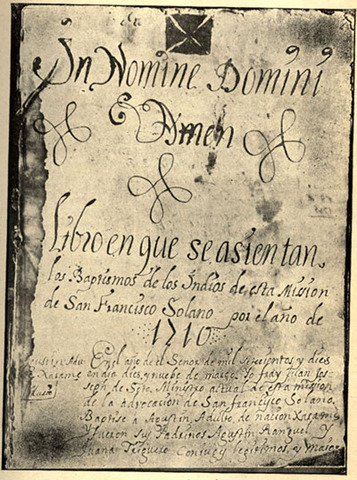 In Nomine Domini
Amen
Libro en que se asientan
los Baptismos de los Indios de esta Mission
de San Francisco Solano por el año de
1710
En el año de el Señor de mil setecientos y diez
Xarame en dia diez y nuebe de março. Yo fray Juan Jos-
seph de Sto, Ministro actual de esta mision
de la advocacion de San Francisco Solano.
Baptise a Agustin Adulto de nacion Xarame
y fueron sus Padrinos Agustin Ranguel y
Juana conjuges legitimos, y